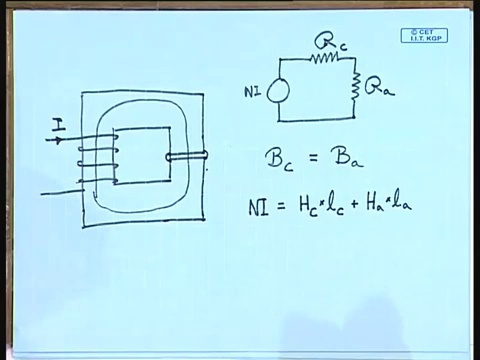 © CET
I.I.T. KGP
R_c
I
NI
R_a
B_c = B_a
NI = H_c * l_c + H_a * l_a